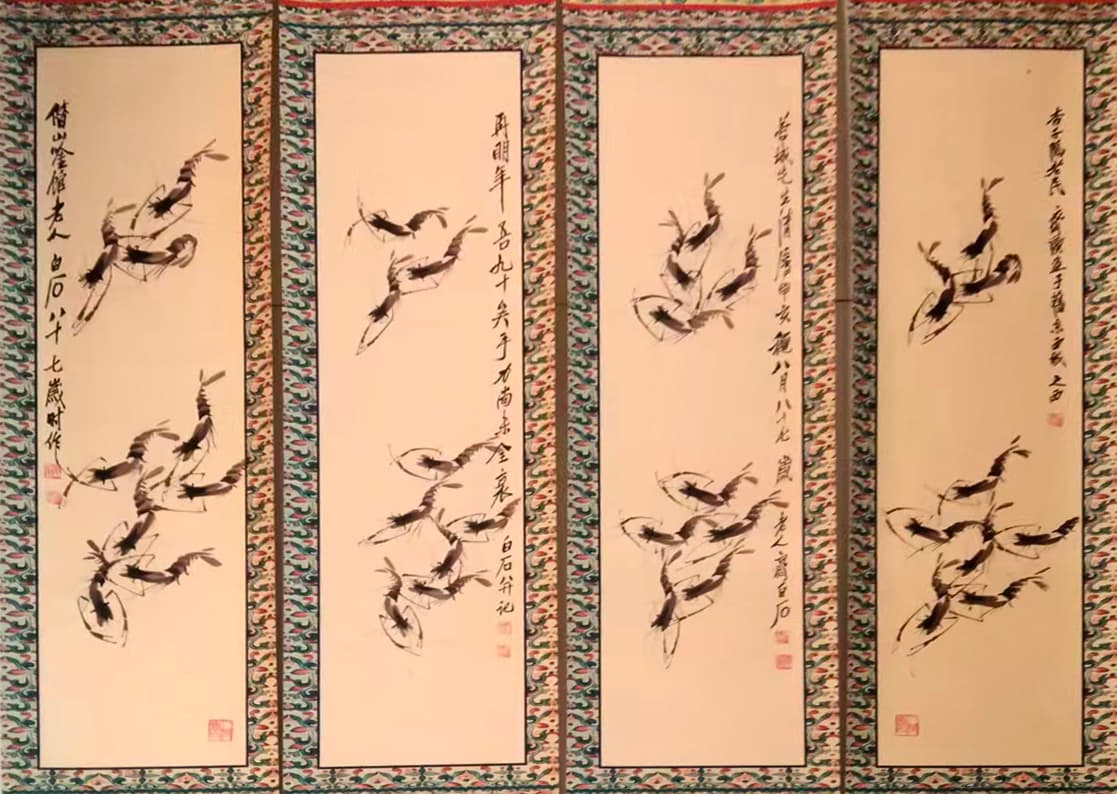 杏子隖老民齊璜造于舊京西城之西
城先生清屬八月八十七歲老人齊白石
再明年吾九十矣手力尚未全衰白石并记
借山唫館老人白石八十七歲时作